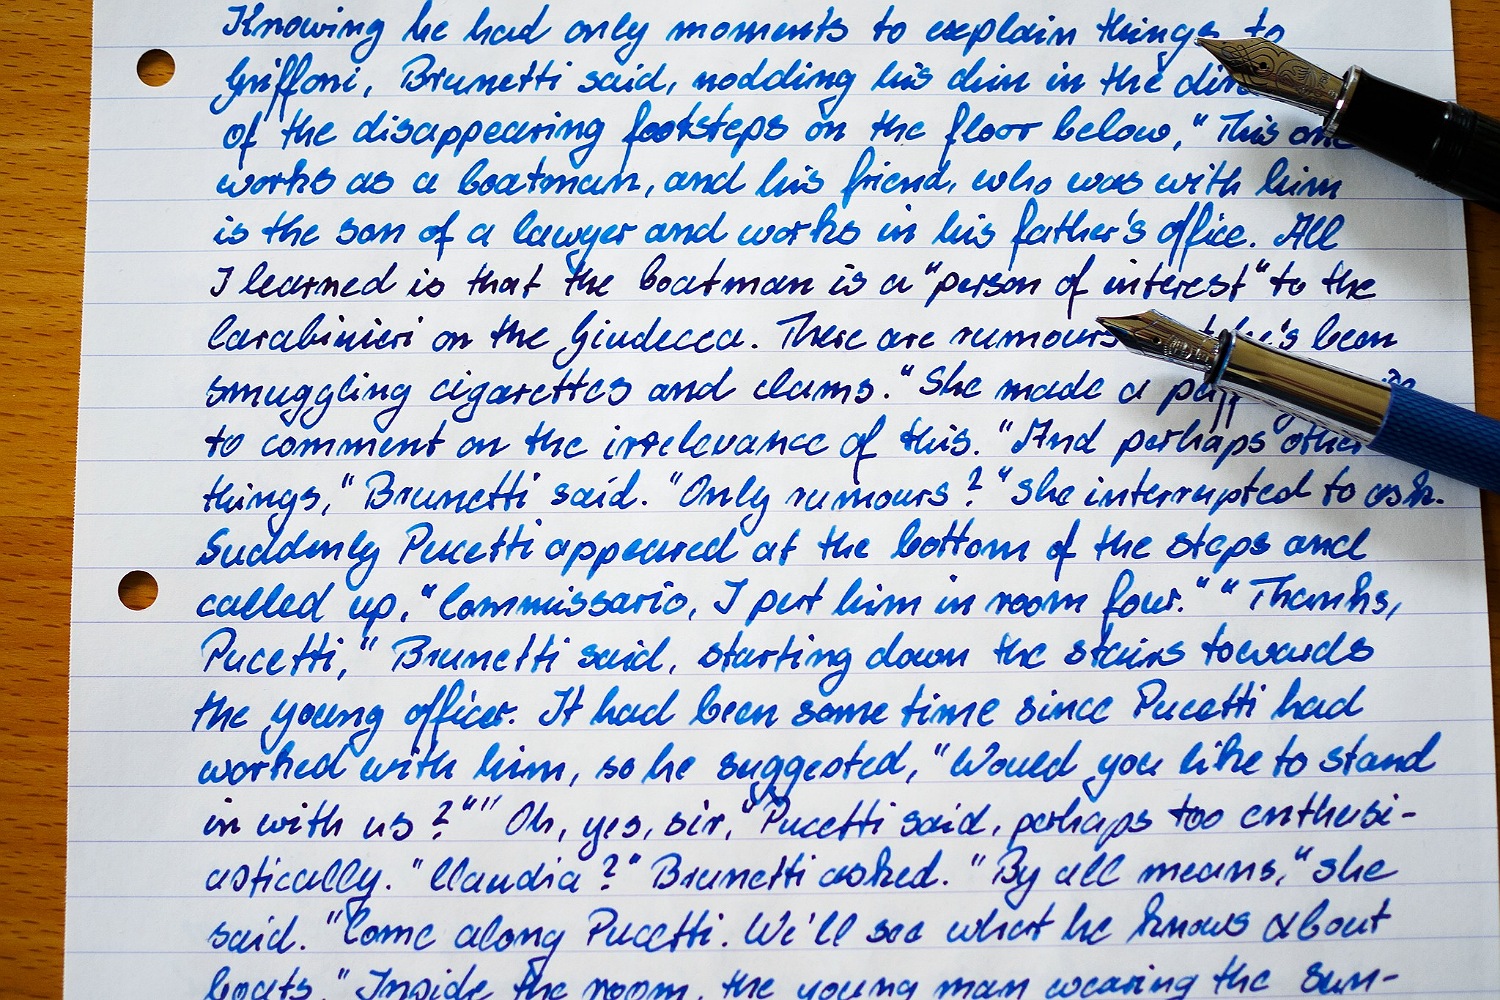 Knowing he had only moments to explain things to
Griffoni, Brunetti said, nodding his chin in the
of the disappearing footsteps on the floor below, "This one
works as a boatman, and his friend, who was with him
is the son of a lawyer and works in his father's office. All
I learned is that the boatman is a "person of interest" to the
Carabinieri on the Giudecca. There are rumours he's been
smuggling cigarettes and clams." She made a
to comment on the irrelevance of this. "And perhaps other
things," Brunetti said. "Only rumours?" She interrupted to ask.
Suddenly Pucetti appeared at the bottom of the steps and
called up, "Commissario, I put him in room four." "Thanks,
Pucetti," Brunetti said, starting down the stairs towards
the young officer. It had been some time since Pucetti had
worked with him, so he suggested, "Would you like to stand
in with us?" "Oh, yes, sir," Pucetti said, perhaps too enthusi-
astically. "Claudia?" Brunetti asked. "By all means," she
said. "Come along Pucetti. We'll see what he knows about
boats." Inside the room, the young man wearing the sun-